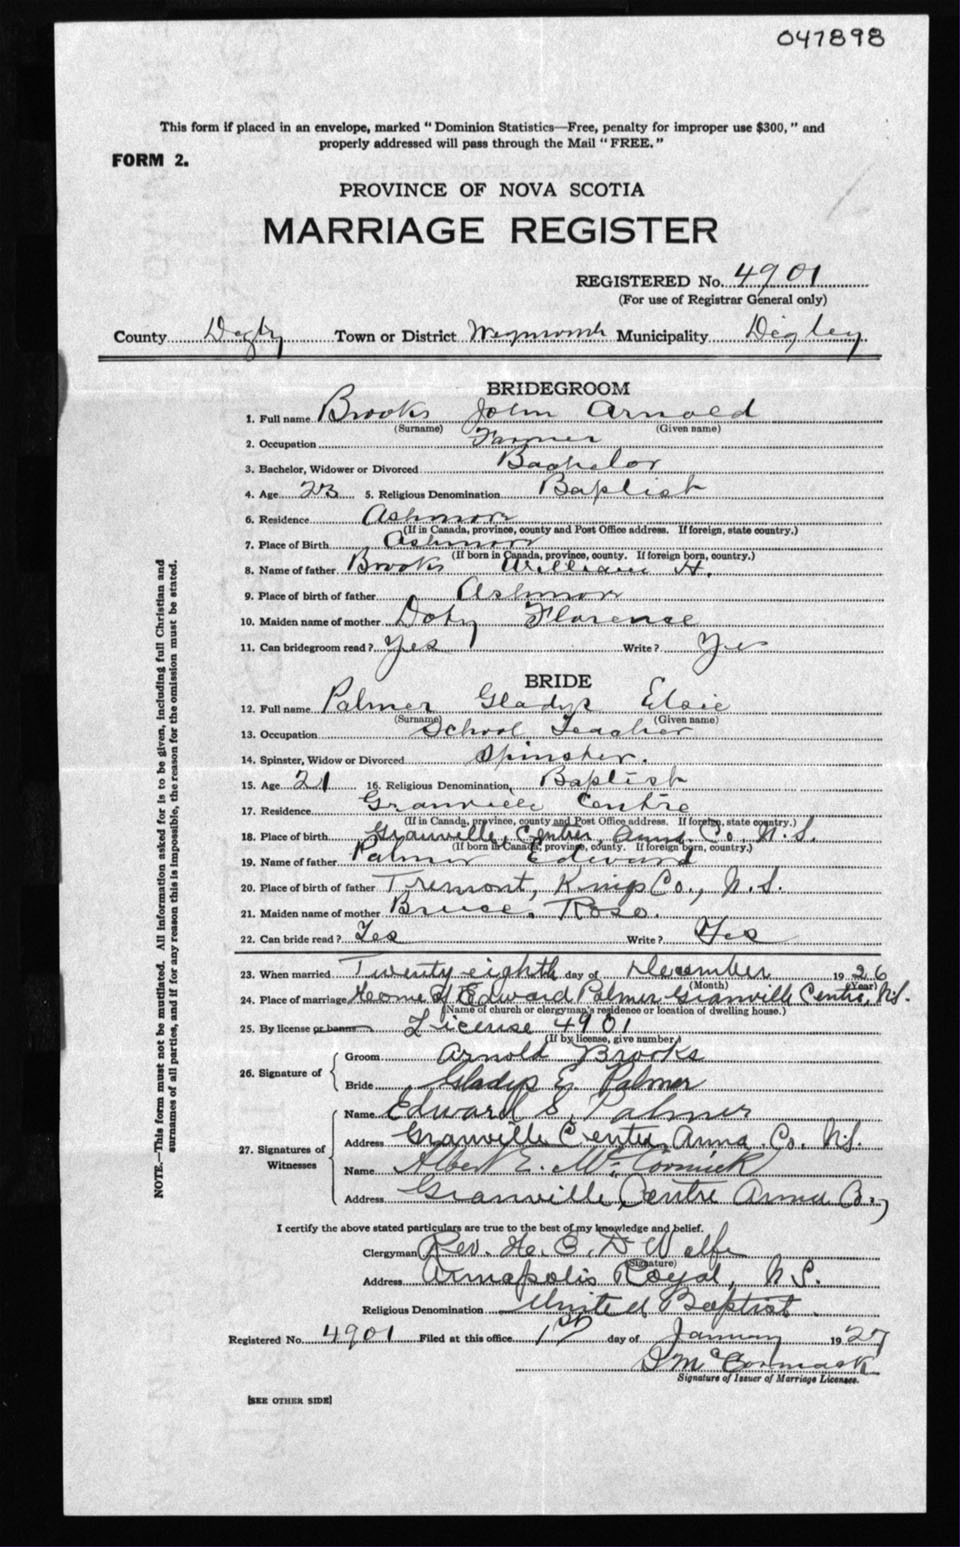 047898
This form if placed in an envelope, marked "Dominion Statistics—Free, penalty for improper use $300," and
properly addressed will pass through the Mail "FREE."
FORM 2.
PROVINCE OF NOVA SCOTIA
MARRIAGE REGISTER
REGISTERED No. 4901
(For use of Registrar General only)
County Digby Town or District Weymouth Municipality Digby
BRIDEGROOM
1. Full name Brooks John Arnold
(Surname) (Given name)
2. Occupation Farmer
3. Bachelor, Widower or Divorced Bachelor
4. Age 23 5. Religious Denomination Baptist
6. Residence Ashmore
(If in Canada, province, county and Post Office address. If foreign, state country.)
7. Place of Birth Ashmore
(If born in Canada, province, county. If foreign born, country.)
8. Name of father Brooks William H.
9. Place of birth of father Ashmore
10. Maiden name of mother Doty Florence
11. Can bridegroom read? Yes Write? Yes
BRIDE
12. Full name Palmer Gladys Elsie
(Surname) (Given name)
13. Occupation School Teacher
14. Spinster, Widow or Divorced Spinster.
15. Age 21 16. Religious Denomination Baptist
17. Residence Granville Centre
(If in Canada, province, county and Post Office address. If foreign, state country.)
18. Place of birth Granville, Centre, Anna. Co. N.S.
(If born in Canada, province, county. If foreign born, country.)
19. Name of father Palmer Edward
20. Place of birth of father Tremont, Kings Co., N.S.
21. Maiden name of mother Bruce. Rose.
22. Can bride read? Yes Write? Yes
23. When married Twenty eighth day of December 1926
(Month) (Year)
24. Place of marriage Home of Edward Palmer Granville Centre, N.S.
(Name of church or clergyman's residence or location of dwelling house.)
25. By license or banns License 4901
(If by license, give number)
26. Signature of Groom Arnold Brooks
Bride Gladys E. Palmer
27. Signatures of Witnesses Name Edward S. Palmer
Address Granville Centre Anna. Co. N.S.
Name Albert E. McCormick
Address Granville Centre Anna Co.,
I certify the above stated particulars are true to the best of my knowledge and belief.
Clergyman Rev. H. C. D Wolfe
(Signature)
Address Annapolis Royal, N.S.
Religious Denomination United Baptist
Registered No. 4901 Filed at this office 1st day of January 1927
McCormack
Signature of Issuer of Marriage Licenses.
[SEE OTHER SIDE]
NOTE.—This form must not be mutilated. All information asked for is to be given, including full Christian and
surnames of all parties, and if for any reason this is impossible, the reason for the omission must be stated.